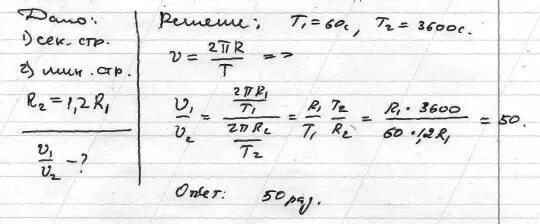 Дано:
1) сек. стр.
2) мин. стр.
R₂ = 1,2 R₁
υ₁/υ₂ - ?
Решение: T₁ = 60с, T₂ = 3600с.
υ = 2πR/T =>
υ₁/υ₂ = (2πR₁/T₁)/(2πR₂/T₂) = R₁/T₁ T₂/R₂ = R₁ · 3600/60 · 1,2R₁ = 50.
Ответ: 50 раз.